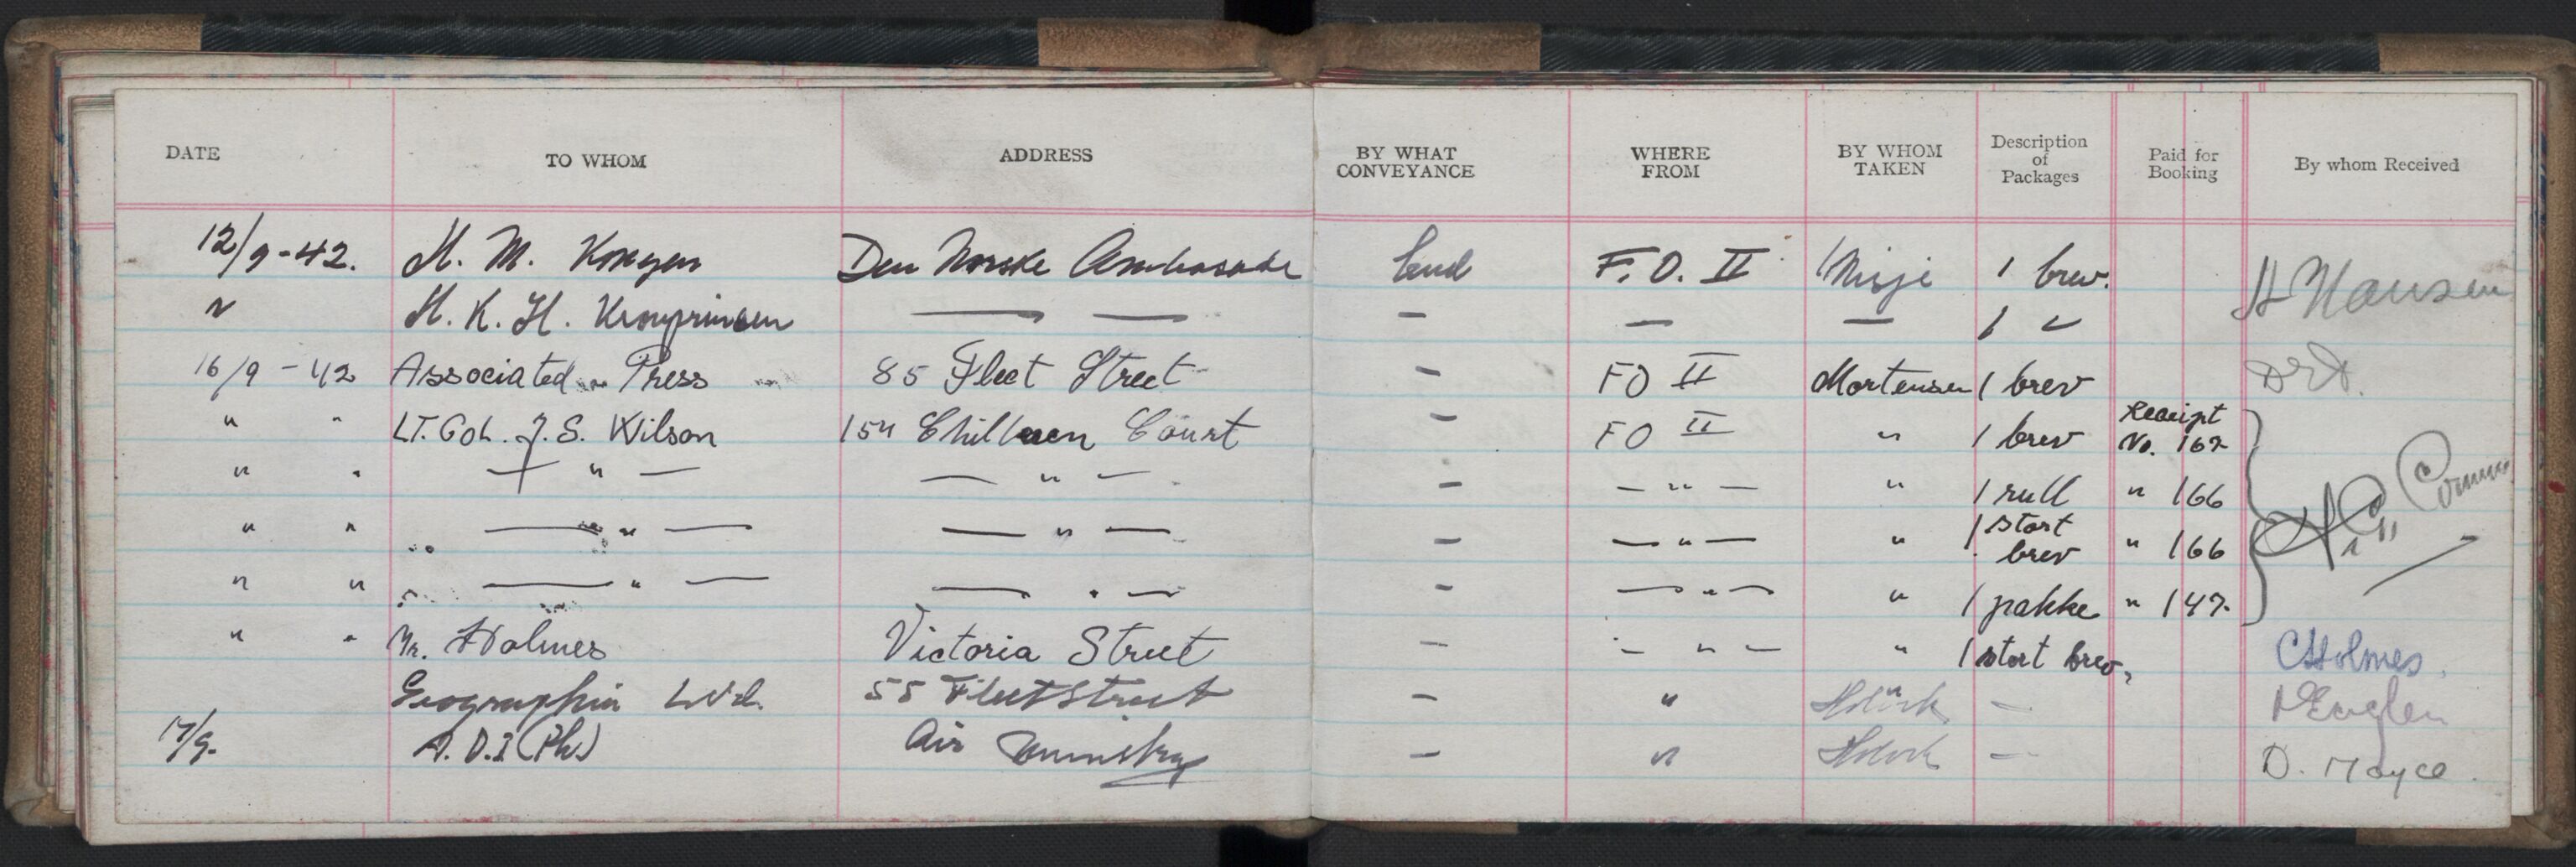 DATE TO WHOM ADDRESS BY WHAT CONVEYANCE WHERE FROM BY WHOM TAKEN Description of Packages Paid for Booking By whom Received
12/9-42. H. M. Kongen Den Norske Ambasade bud F.O. II Misje 1 brev. H Hansen
" H. K. H. Kronprinsen — — — — — 1 "
16/9-42 Associated Press 85 Fleet Street — FO II Mortensen 1 brev
" " LT. Col. J. S. Wilson 154 Chiltern Court — FO II " 1 brev Receipt No. 167
" " — " — — " — — — " — " 1 rull " 166
" " — " — — " — — — " — " 1 stort brev " 166
" " — " — — " — — — " — " 1 pakke " 147.
" " Mr. Holmes Victoria Street — — " — " 1 stort brev. C Holmes.
Geographia Ltd. 55 Fleet Street — " —
17/9. A.D.I (Ph) Air Ministry — " — D. Mayce.